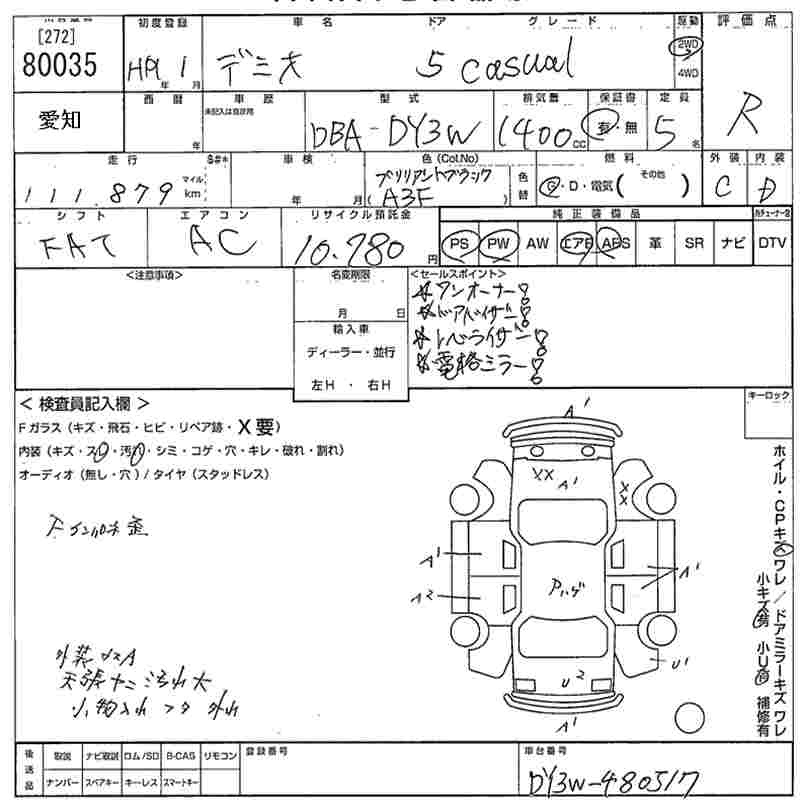 [272]
80035
初度登録
車名
ドア
グレード
駆動
評価点
H19 1
年 月
デミオ
5 casual
2WD
4WD
R
愛知
西暦
年
車歴
未記入は自家用
型式
DBA-DY3W
排気量
1400cc
保証書
有・無
定員
5名
走行
111,879
マイル
km
S#*
車検
年 月
色(Col.No)
ブリリアントブラック
(A3F
色替
燃料
G・D・電気( その他 )
外装
C
内装
D
シフト
FAT
エアコン
AC
リサイクル預託金
10,780円
純正装備品
PS PW AW エアB ABS 革 SR ナビ DTV
<注意事項>
名変期限
月 日
輸入車
ディーラー・並行
左H ・ 右H
<セールスポイント>
☆ワンオーナー!
☆ドアバイザー!
☆レベライザー!
☆電格ミラー!
< 検査員記入欄 >
Fガラス (キズ・飛石・ヒビ・リペア跡・X要)
内装 (キズ・スレ・汚れ・シミ・コゲ・穴・キレ・破れ・割れ)
オーディオ (無し・穴) / タイヤ (スタッドレス)
外装キズA
天張ヤニ汚れ大
小物入れフタ外れ
A1
XX
A1
XX
A1
A2
A1
Pハゲ
U2
U1
A1
キーロック
ホイル・CPキズ ワレ / ドアミラーキズ ワレ
小キズ有 小U有 補修有
後送品
取説 ナビ取説 ロム/SD B-CAS リモコン
ナンバー スペアキー キーレス スマートキー
登録番号
車台番号
DY3W-480517